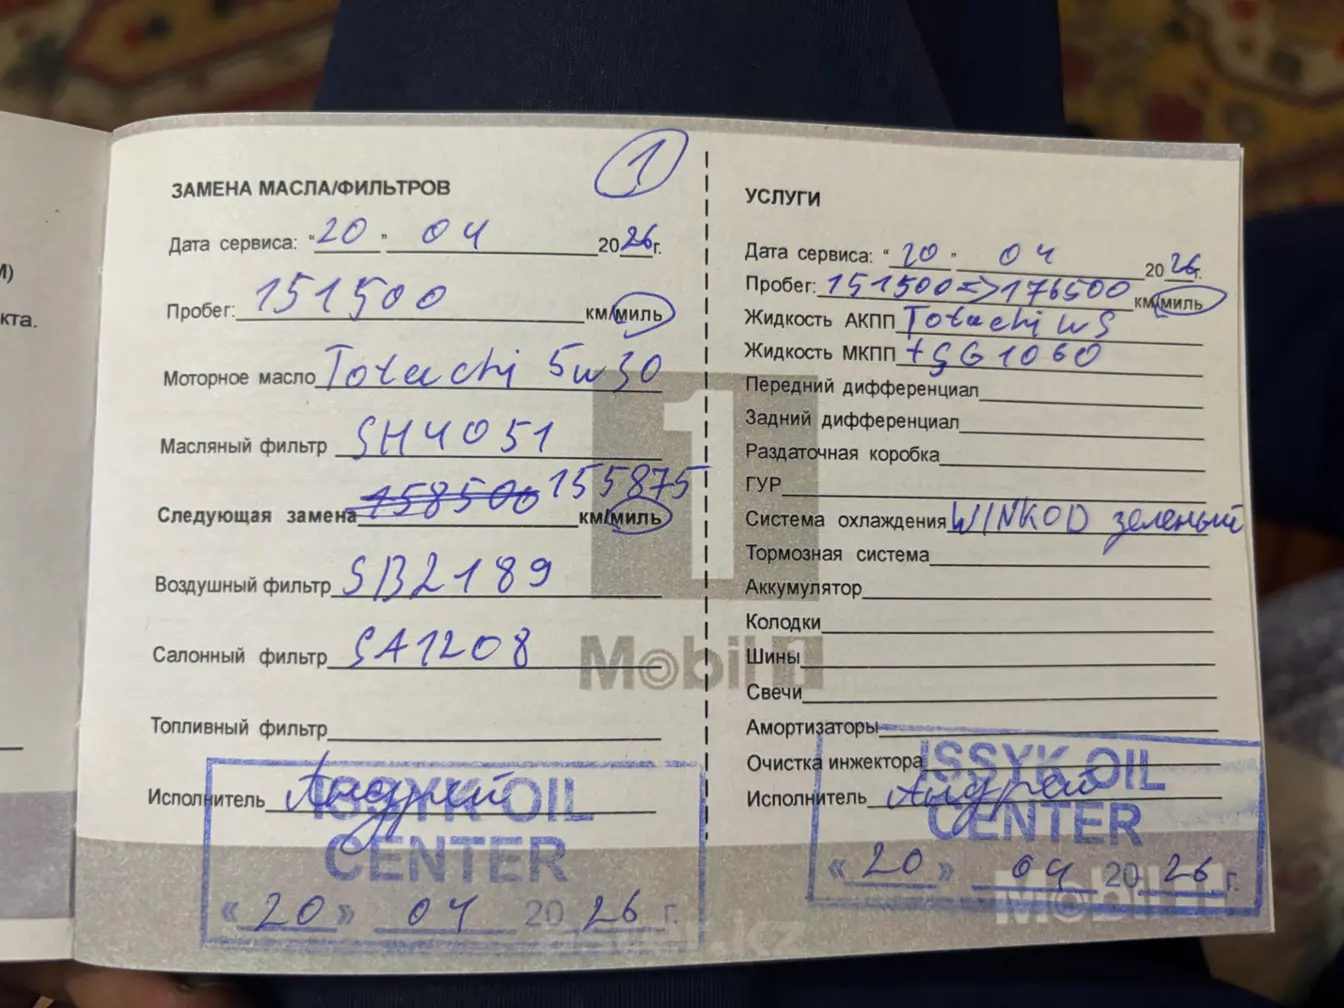 М)
кта.
1
ЗАМЕНА МАСЛА/ФИЛЬТРОВ
Дата сервиса: "20" 04 2026г.
Пробег: 151500 км/миль
Моторное масло Totachi 5w30
Масляный фильтр SH4051
Следующая замена 158500 155875 км/миль
Воздушный фильтр SB2189
Салонный фильтр SA1208
Топливный фильтр
Исполнитель Андрей
ISSYK OIL
CENTER
«20» 04 2026 г.
Mobil 1
УСЛУГИ
Дата сервиса: "20" 04 2026г.
Пробег: 151500=>176500 км/миль
Жидкость АКПП Totachi WS
Жидкость МКПП +SG1060
Передний дифференциал
Задний дифференциал
Раздаточная коробка
ГУР
Система охлаждения WINKOD зеленый
Тормозная система
Аккумулятор
Колодки
Шины
Свечи
Амортизаторы
Очистка инжектора
Исполнитель Андрей
ISSYK OIL
CENTER
«20» 04 2026 г.
Mobil 1